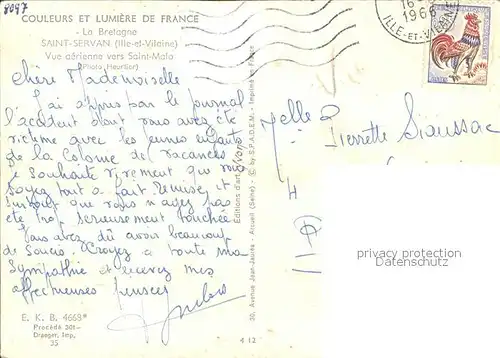 8097
COULEURS ET LUMIÈRE DE FRANCE
- La Bretagne
SAINT-SERVAN (Ille-et-Vilaine)
Vue aérienne vers Saint-Malo
(Photo Heurtier)
Chère Mademoiselle
J'ai appris par le journal
l'accident dont vous avez été
victime avec les jeunes enfants
de la Colonie de vacances
Je souhaite vivement que vous
soyez tout à fait remise, et
surtout que vous n'ayez pas
été trop sérieusement touchée.
Vous avez dû avoir beaucoup
de soucis. Croyez à toute ma
sympathie et recevez mes
affectueuses pensées
E. K. B. 4668*
Procédé 301-
Draeger, Imp.
35
Éditions d'art Yvon
30, Avenue Jean-Jaurès - Arcueil (Seine) - © by S.P.A.D.E.M. - Imprimé en France
4 12
16
1966
ILLE-ET-VILAINE
Melle
Pierrette Siaussac
privacy protection
Datenschutz.